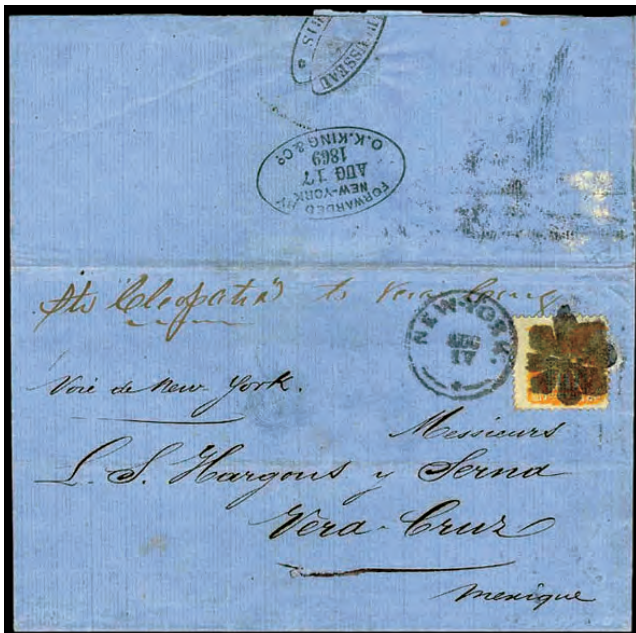 RUSSEAU
FORWARDED BY
NEW-YORK
AUG 17
1869
O.K.KING & Co
pr "Cleopatra" to Vera Cruz
NEW-YORK
AUG
17
Voie de New York.
Messieurs
L. S. Hargous y Serna
Vera-Cruz
Mexique